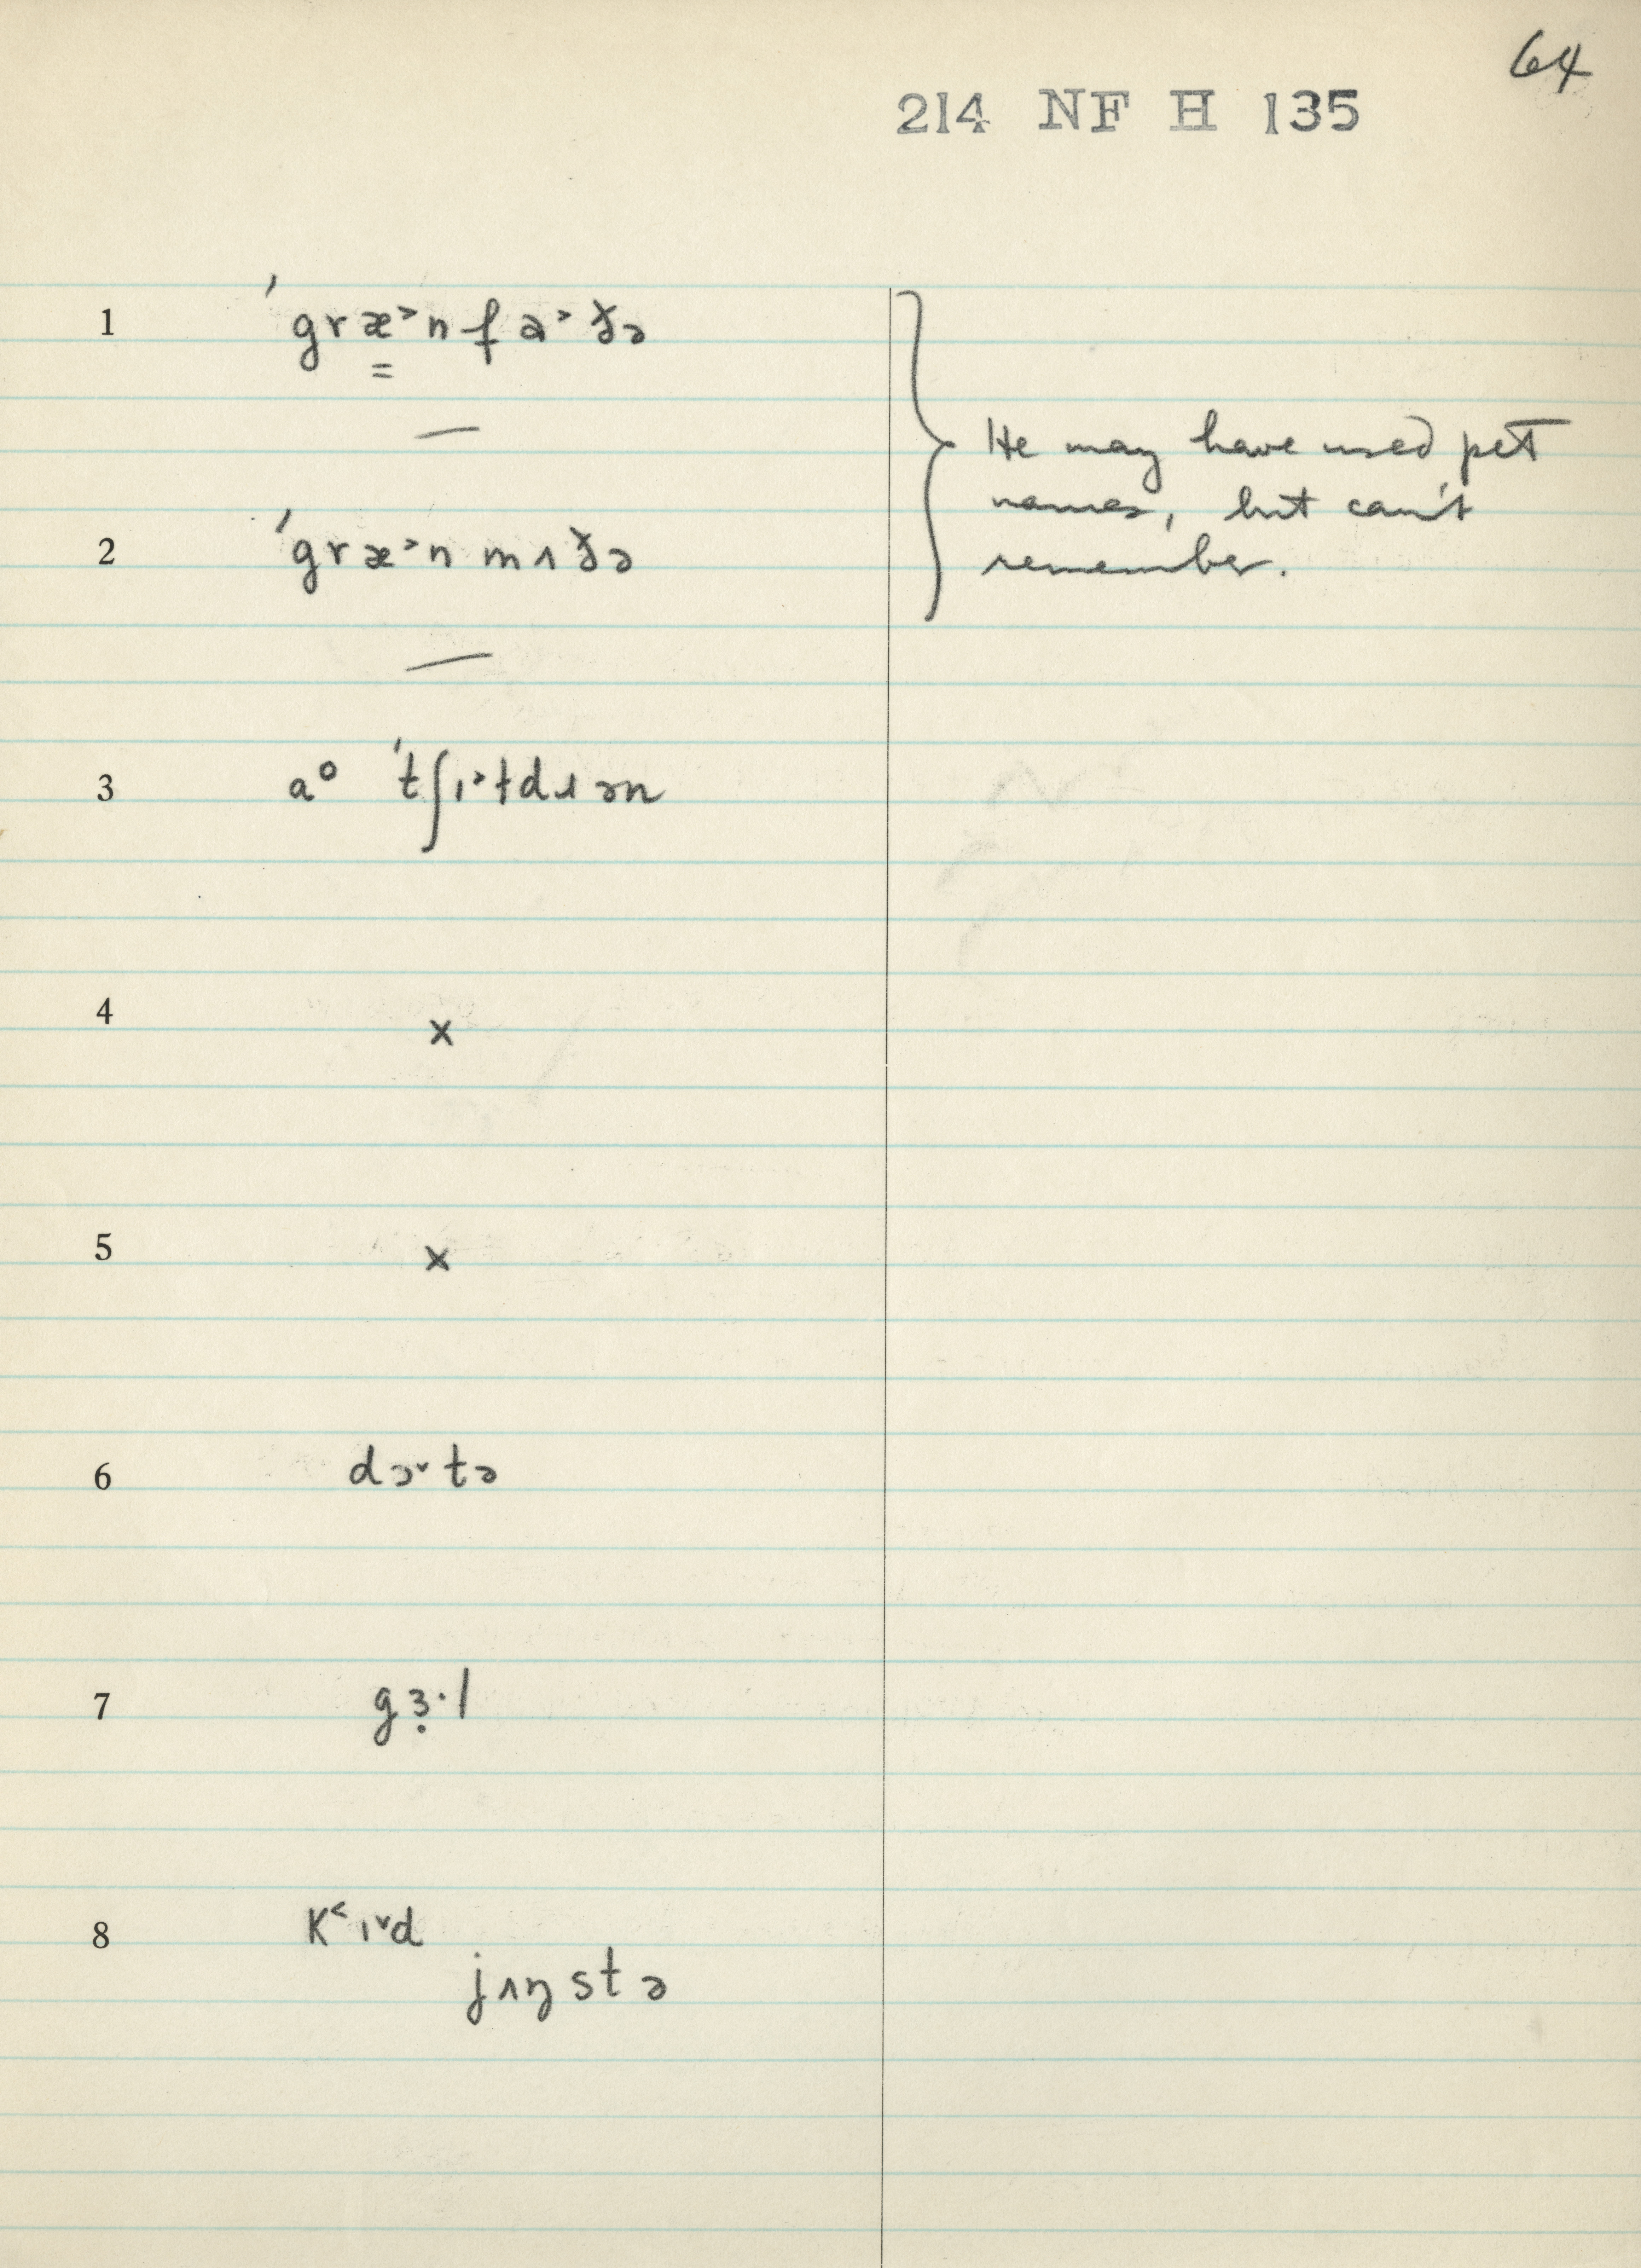 64
214 NF H 135
1 ˈgræ̳˃nfa˃ðə
—
He may have used pet
names, but can't
remember.
2 ˈgræ˃nmʌðə
—
3 aᵒ ˈtʃɪ˃ɫdɹən
4 x
5 x
6 dɔ˅tə
7 gɜ̣·l
8 K˂ɪ˅d
jʌŋstə